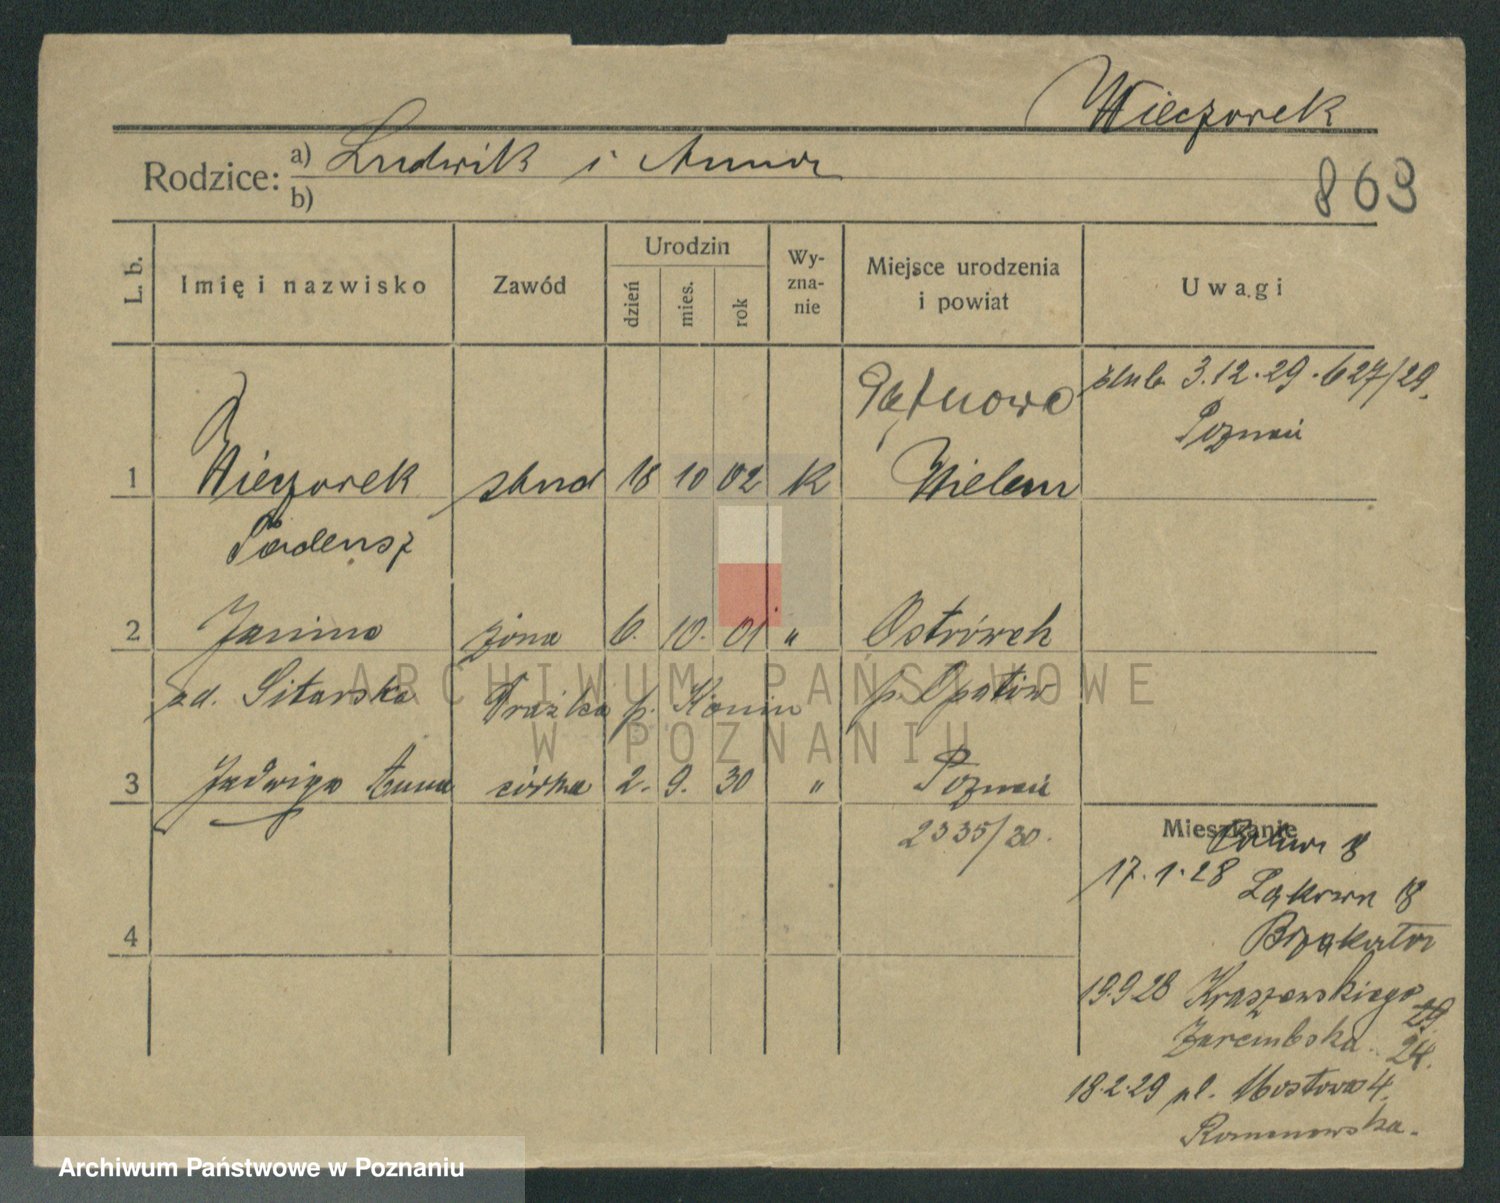 Wieczorek
Rodzice: a) Ludwik i Anna
b)
863
L. b. Imię i nazwisko Zawód Urodzin dzień mies. rok Wy-zna-nie Miejsce urodzenia i powiat Uwagi
Pątnowo ślub 3.12.29. 627/29.
Poznań
1 Wieczorek stud 18 10 02 K Wielun
Tadeusz
2 Janina żona 6. 10. 01 " Ostrówek
zd. Sitarska p. Konin p. Opatów
3 Jadwiga Anna córka 2. 9. 30 " Poznań
2335/30.
Mieszkanie
8
17.1.28 Łąkowa 18
4
19.9.28 Kraszewskiego 29
Zarembska 24.
18.2.29 ul. Mostowa 4.
Romanowska.
ARCHIWUM PAŃSTWOWE
W POZNANIU
Archiwum Państwowe w Poznaniu